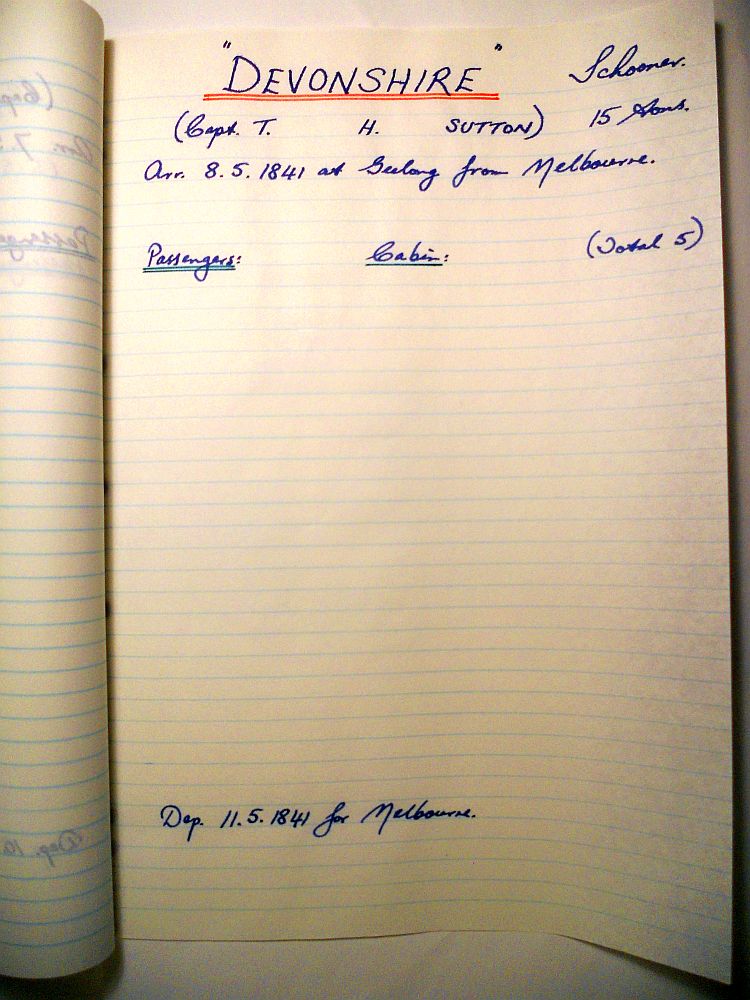 "DEVONSHIRE" Schooner.
(Capt. T. H. SUTTON) 15 tons.
Arr. 8.5.1841 at Geelong from Melbourne.
Passengers: Cabin: (Total 5)
Dep. 11.5.1841 for Melbourne.